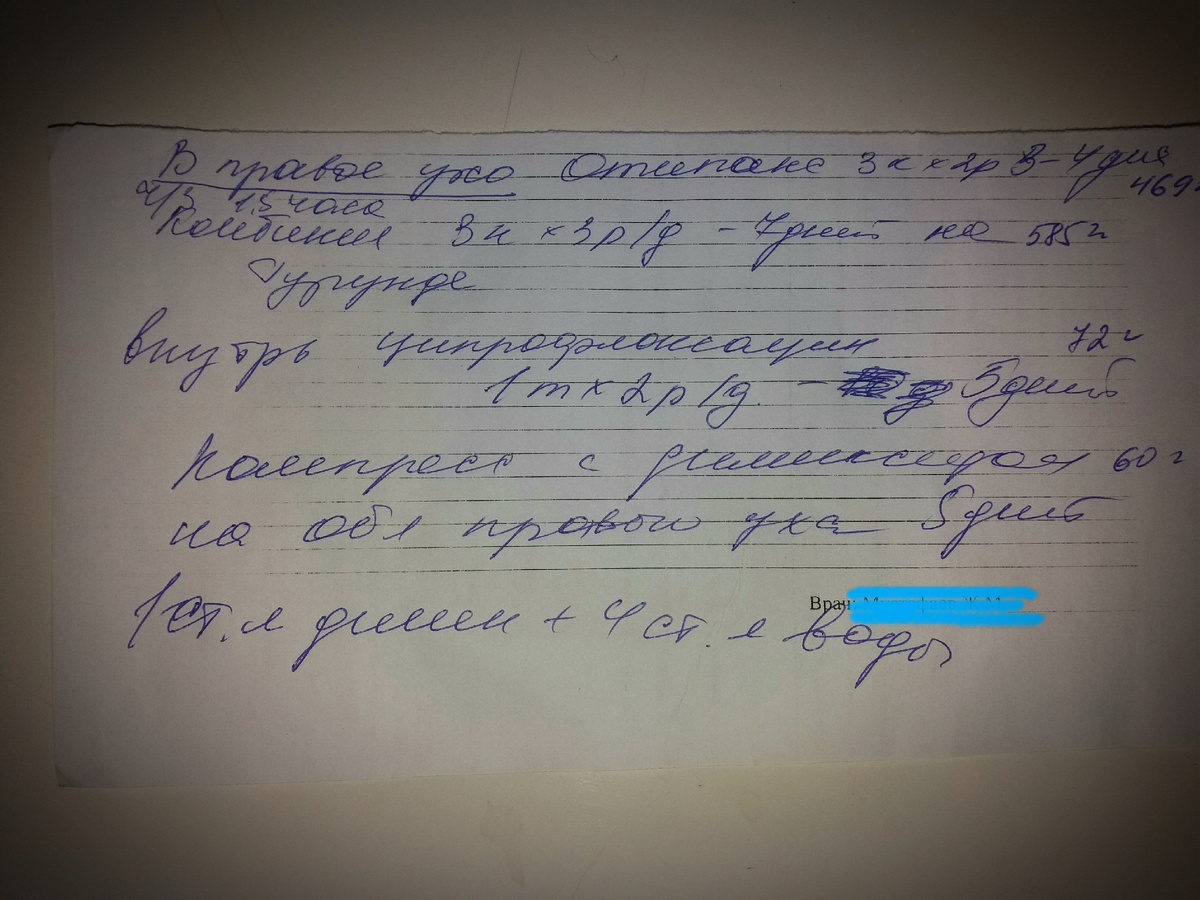 В правое ухо Отипакс 3к х 2р 3-4 дня
469
ч/з 1,5 часа
Комбинил 3к х 3р/д - 7дней на 585г
Турунде
внутрь ципрофлоксацин 72г
1т х 2р/д. - 5дней
Компресс с димексидом 60г
на обл правого уха 5дней
Врач
1ст. л димек + 4ст. л воды